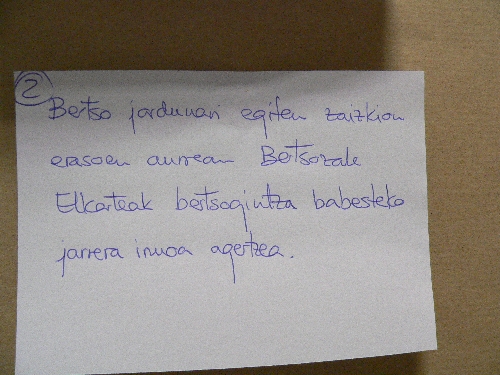 2
Bertso jardunari egiten zaizkion
erasoen aurrean Bertsozale
Elkarteak bertsogintza babesteko
jarrera irmoa agertzea.